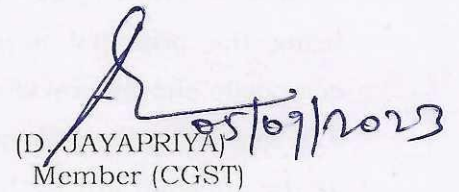 05/09/2023
(D. JAYAPRIYA)
Member (CGST)